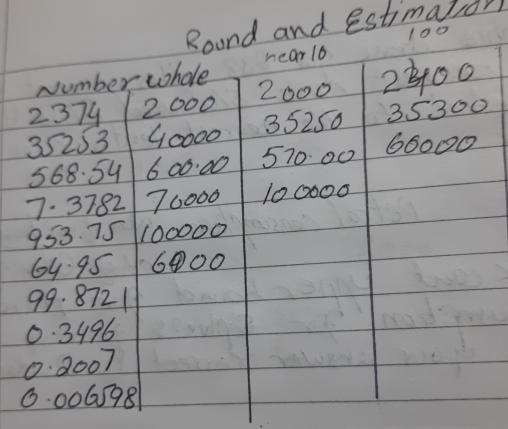 Round and Estimation
near 10 100
Number whole
2374 2000 2000 2400
35253 40000 35250 35300
568.54 600.00 570.00 60000
7.3782 70000 100000
953.75 100000
64.95 6000
99.8721
0.3496
0.2007
0.006598